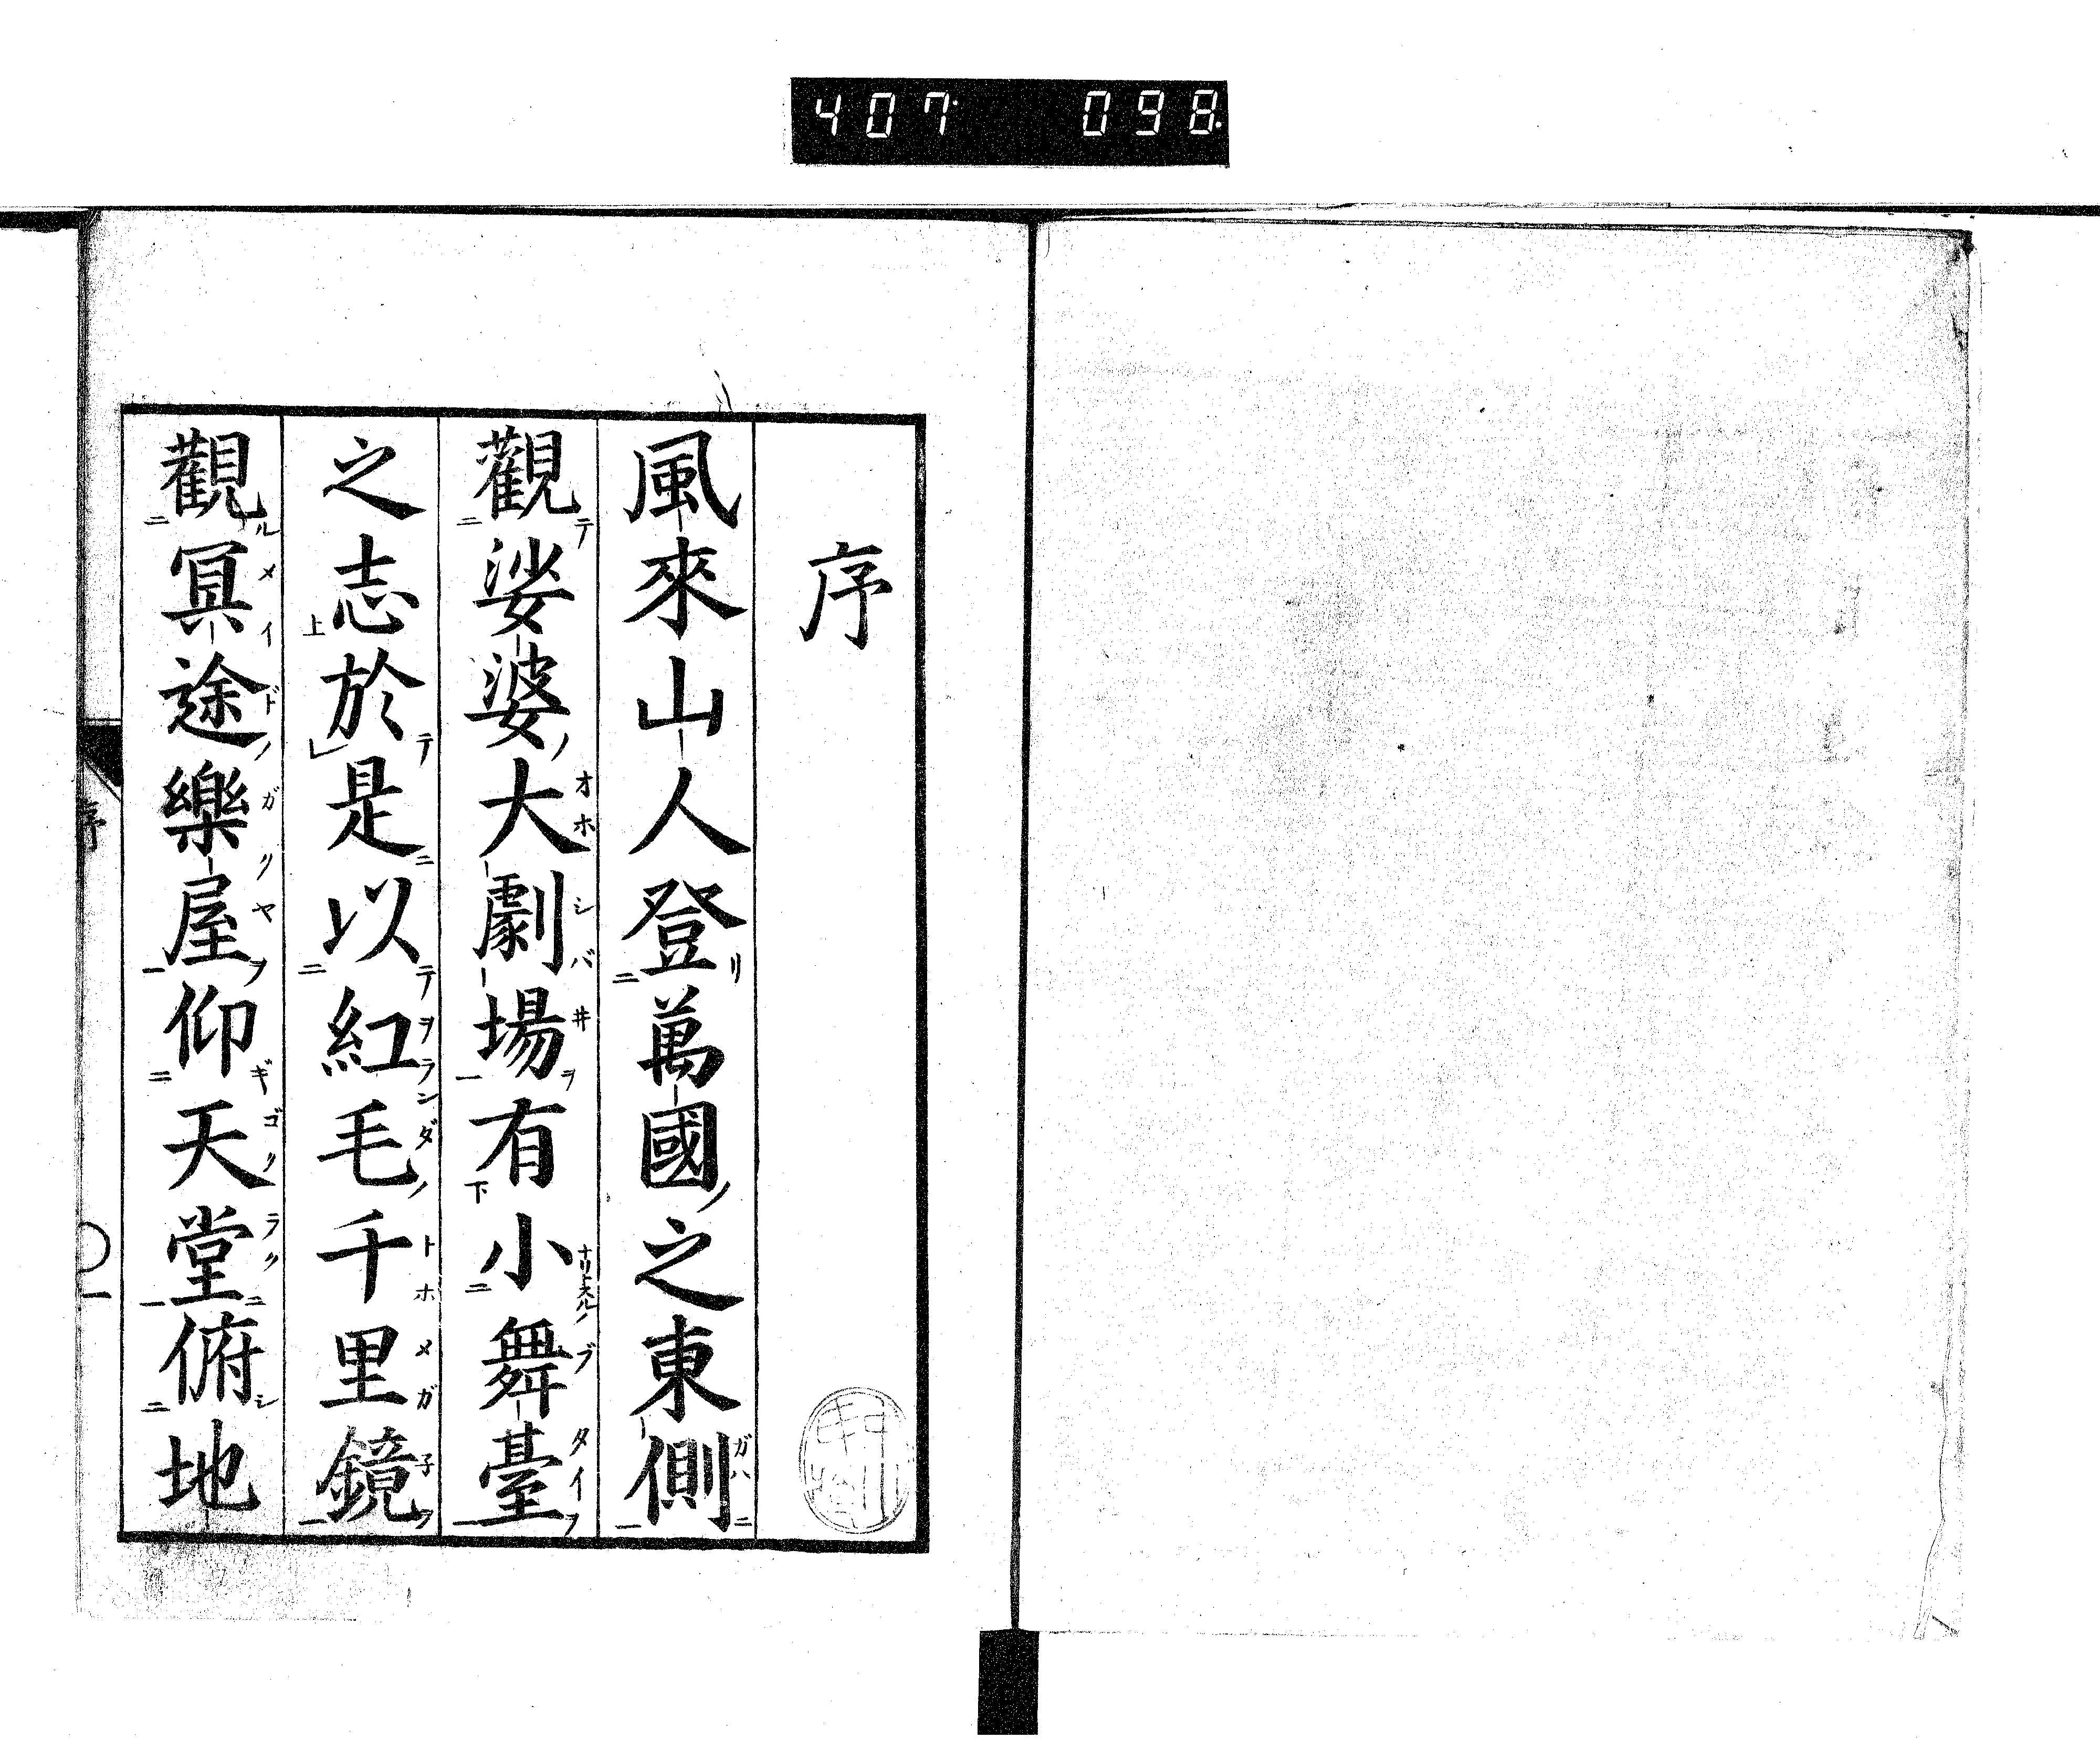 407 098
序
風來山人登萬國之東側
觀娑婆大劇場有小舞臺
之志於是以紅毛千里鏡
觀冥途樂屋仰天堂俯地
序
一